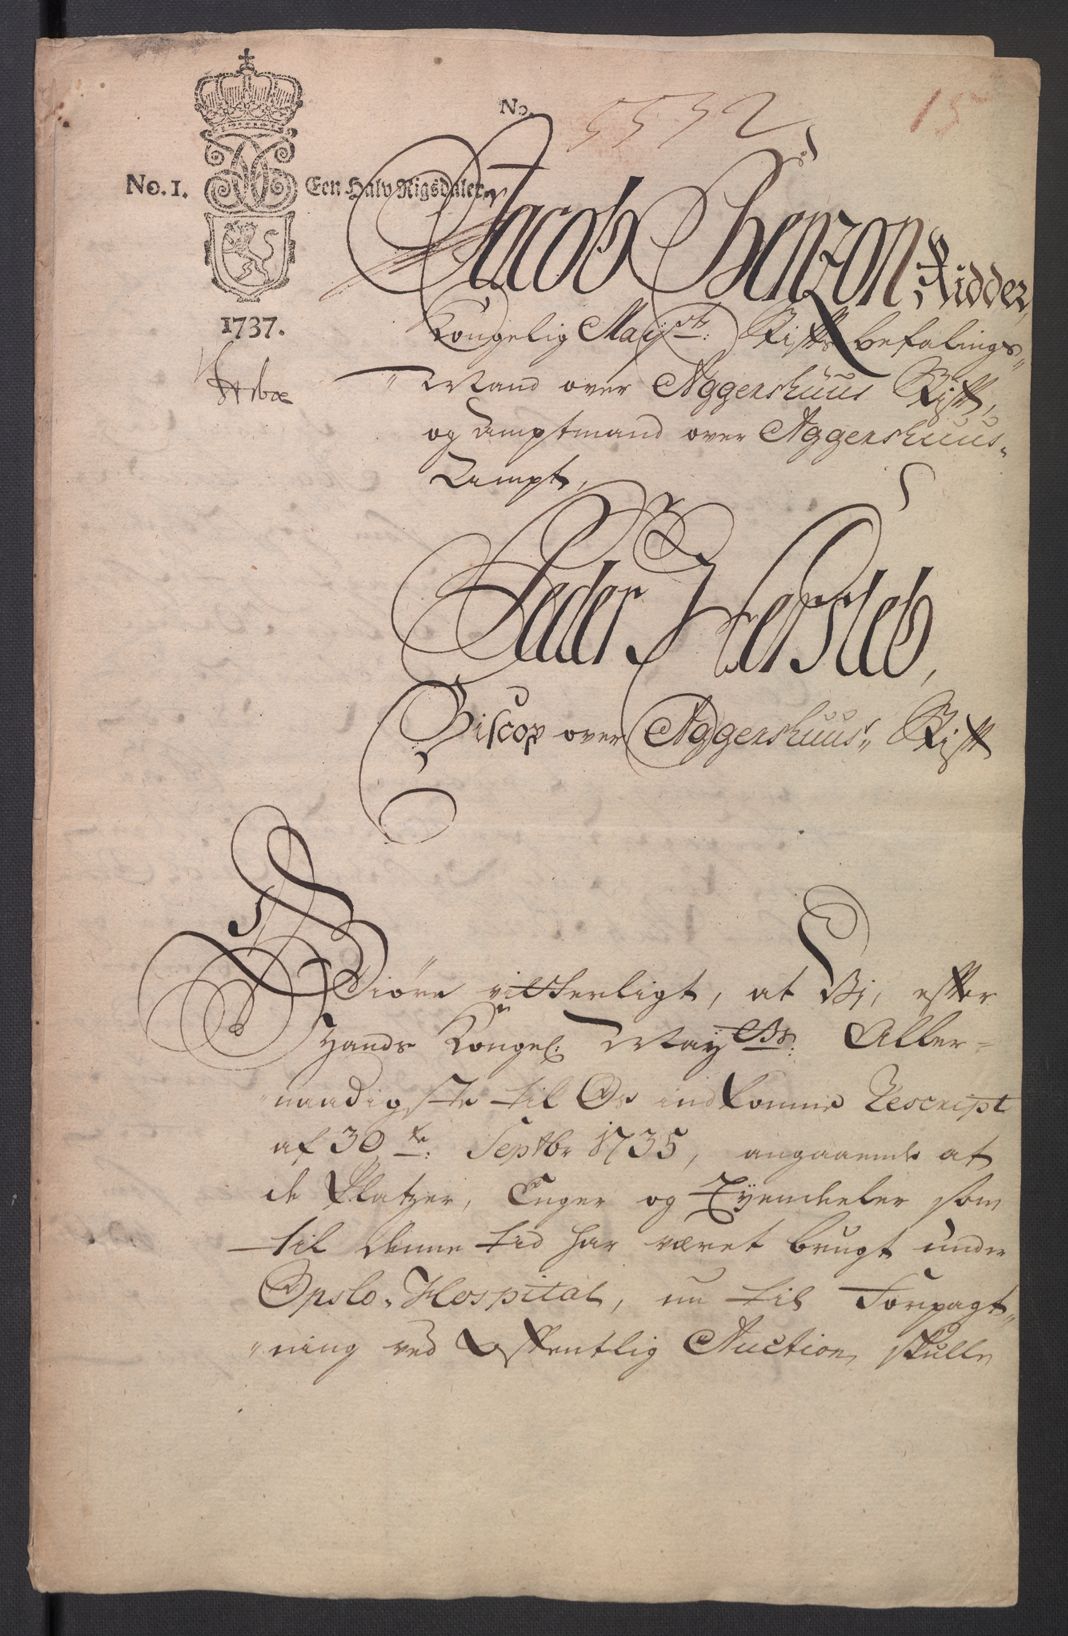 No. 5532
15
No. 1. Een Halv Rigsdaler.
1737.
Jacob Benzon, Ridder,
Kongelig Mayst: Stifts befalings„
„Mand over Aggershuus Stift,
og Amptmand over Aggershuus„
Ampt,
Peder Hersleb,
Biscop over Aggershuus„ Stift
Giöre vitterligt, at Vi, efter
Hands Kongel: Mayts: Aller=
naadigste til Os indkomne Rescript
af 30te: Septbr 1735, angaaende at
de Platzer, Enger og Eyendeeler som
til denne tid har været brugt under
Opslo„ Hospital, nu til Forpagt„
„ning ved Offentlig Auction skulle